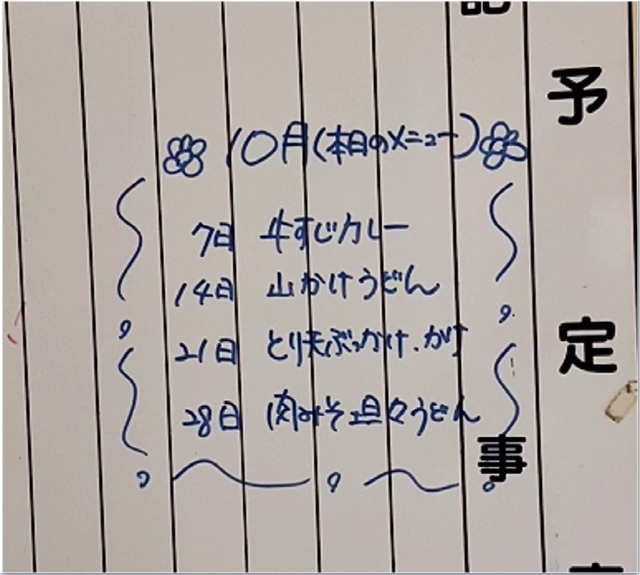 10月(本日のメニュー)
7日 牛すじカレー
14日 山かけうどん
21日 とり天ぶっかけ、かけ
28日 肉みそ坦々うどん
予定
記
事